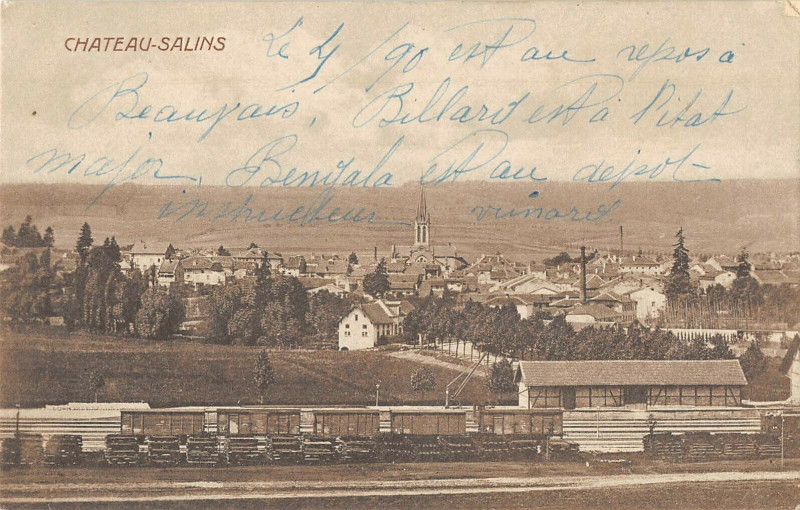 CHATEAU-SALINS
Le 4/90 est au repos a
Beauvais, Billard est à l'état
major, Bengala est au depot
instructeur vuinard